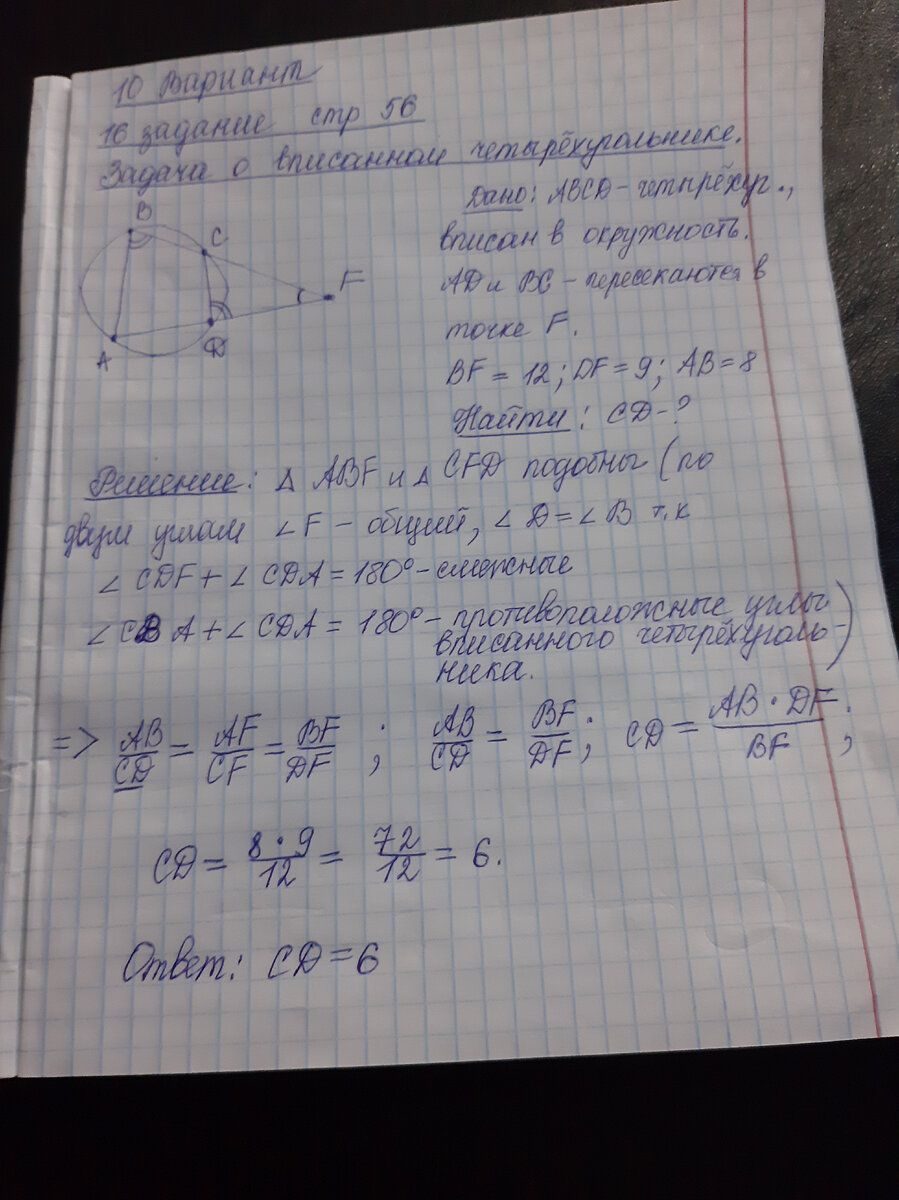 10 Вариант
16 задание стр 56
Задача о вписанном четырёхугольнике.
Дано: ABCD - четырёхуг.,
вписан в окружность.
AD и BC - пересекаются в
точке F.
BF = 12; DF = 9; AB = 8
Найти: CD - ?
B
C
F
A
D
Решение: Δ ABF и Δ CFD подобны (по
двум углам ∠F - общий, ∠D = ∠B т.к
∠CDF + ∠CDA = 180° - смежные
∠CBA + ∠CDA = 180° - противоположные углы
вписанного четырёхуголь-
ника.)
=> AB/CD = AF/CF = BF/DF ; AB/CD = BF/DF; CD = AB · DF/BF;
CD = 8 · 9/12 = 72/12 = 6.
Ответ: CD = 6